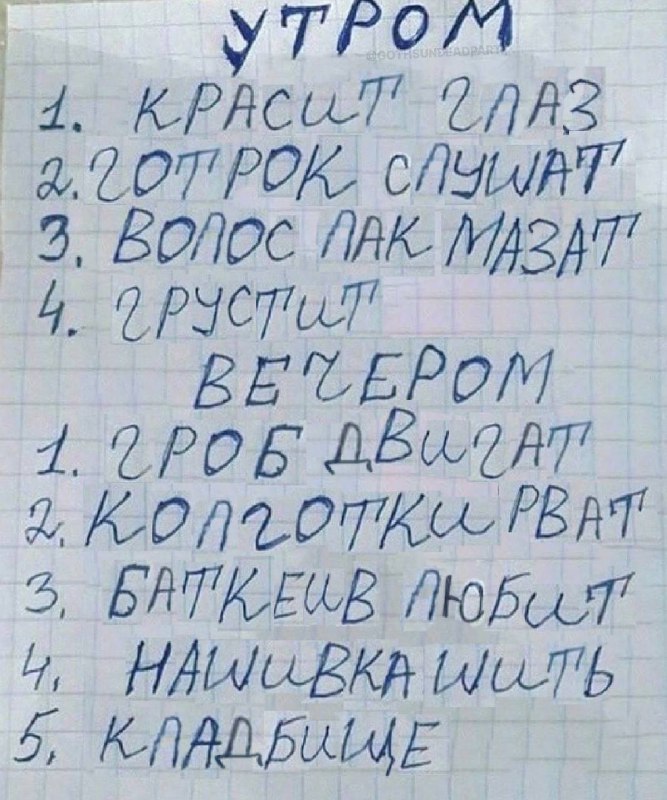 УТРОМ
@GOTHSUNDEADPARTY
1. КРАСИТ ГЛАЗ
2. ГОТРОК СЛУШАТ
3. ВОЛОС ЛАК МАЗАТ
4. ГРУСТИТ
ВЕЧЕРОМ
1. ГРОБ ДВИГАТ
2. КОЛГОТКИ РВАТ
3. БАТКЕИВ ЛЮБИТ
4. НАШИВКА ШИТЬ
5. КЛАДБИЩЕ